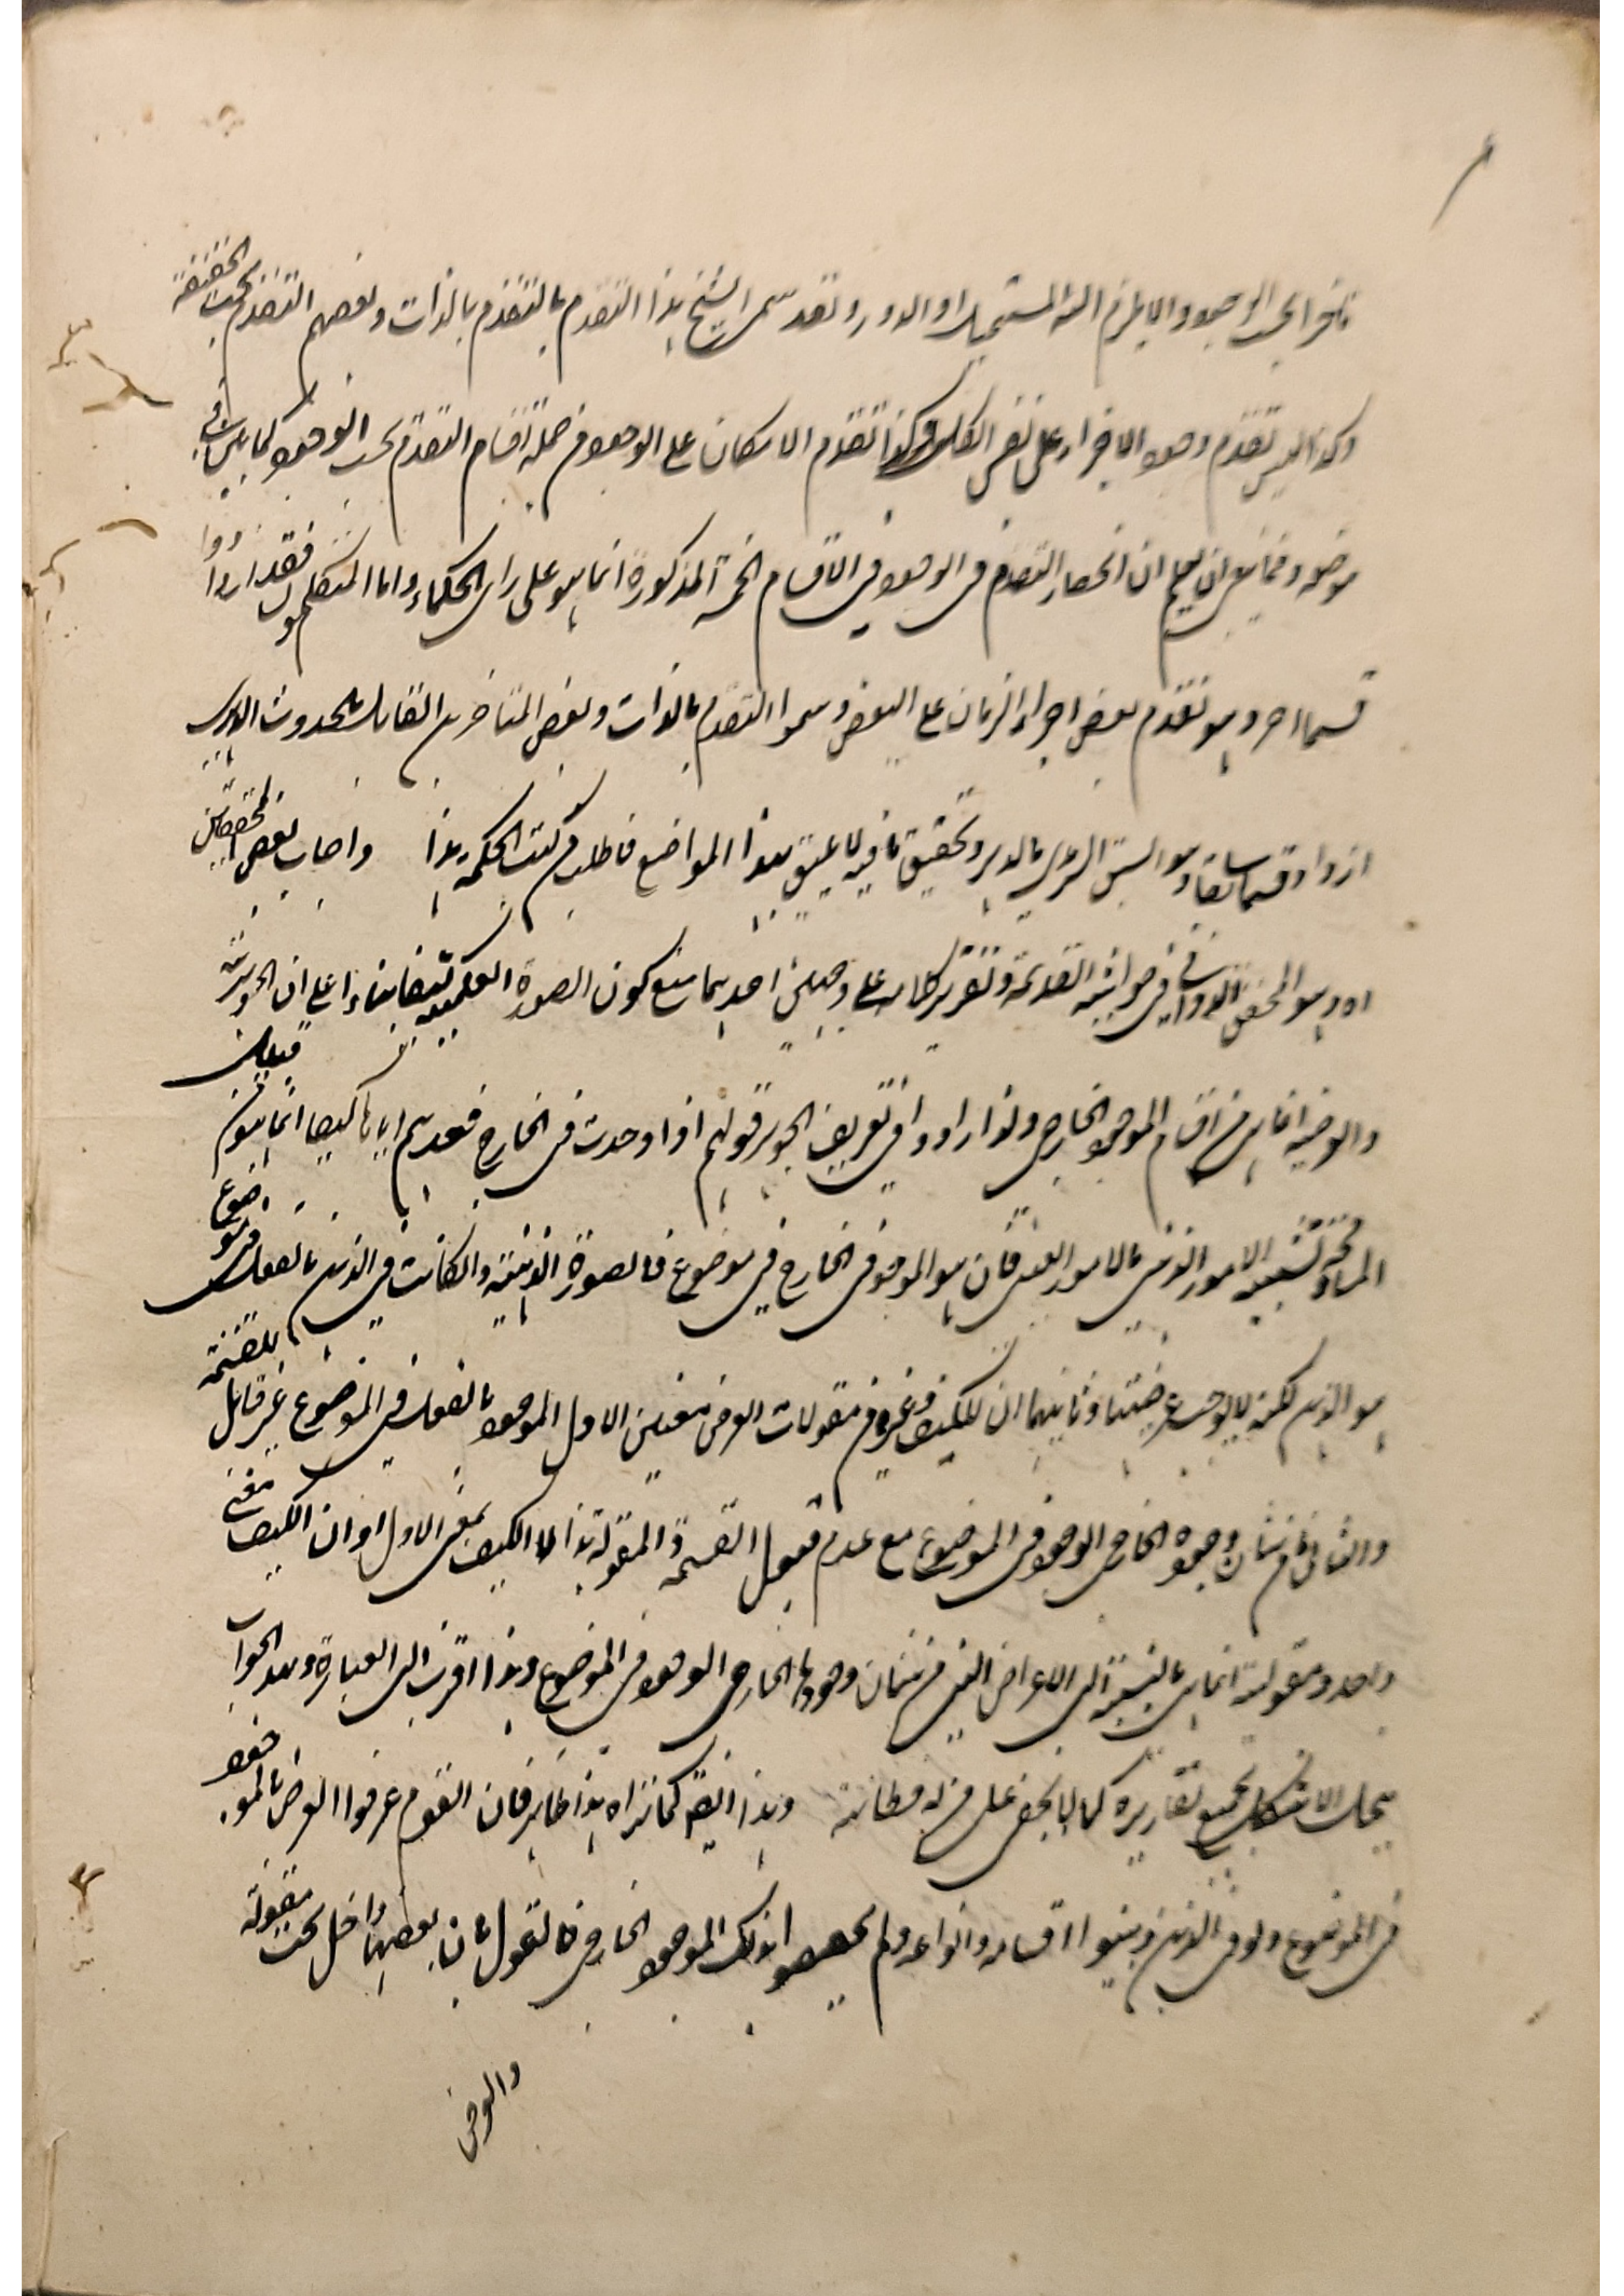 بحسب الوجود والا يلزم التسلسل المستحيل او الدور وقد سمى الشيخ هذا التقدم بالتقدم بالذات وبعضهم التقدم بحسب الحقيقة
وكذا ليس تقدم وجود الافراد على نفس الكلى وكذا تقدم الامكان على الوجود من جملة اقسام التقدم بحسب الوجود كما بين فى
موضعه ومما ينبغى ان يعلم ان انحصار التقدم فى الوجود فى الاقسام الخمسة المذكورة انما هو على راى الحكماء واما المتكلمون فقد زادوا
قسما اخر وهو تقدم بعض اجزاء الزمان على البعض وسموا التقدم بالذات وبعض المتاخرين القائل بالحدوث الدهرى
ازداد قسما سابقا وهو السبق الدهرى بالدهر وتحقيق ما فيه لا يليق بهذا المواضع فاطلب من كتب الحكمة هذا واجاب بعض المحققين
اه وهو المحقق الدوانى فى حواشيه القديمة وتقرير كلامه على وجهين احدهما منع كون الصورة العلمية كيفا بناء على ان الجوهرية
والعرضية انما هى من اقسام الموجود الخارجى ولذا زادوا فى تعريف الجوهر قولهم اذا وجدت فى الخارج فعدهم اياها كيفا انما هو من قبيل
المسامحة وتشبيه الامور الذهنية بالامور العينية فان هو الموجود فى الخارج فى موضوع فالصورة الذهنية وان كانت فى الذهن بالفعل فى موضوع
هو الذهن لكنه لا يوجب عرضيتها وثانيهما ان للكيف وغيره من مقولات العرض معنيين الاول الموجود بالفعل فى الموضوع غير قابل للقسمة
والثانى ما من شان وجوده الخارجى الوجود فى الموضوع مع عدم قبول القسمة والمقولة هذا لا الكيف بمعنى الاول او ان الكيف معنى
واحد ومقوليته انما هى بالنسبة الى الاعراض التى من شان وجودها الخارجى الوجود فى الموضوع وهذا اقرب الى العبارة وبهذا الجواب
ينحل الاشكال بجميع تقاريره كما لا يخفى على من له فطانة وهذا ايضا كما تراه هذا ظاهر فان القوم عرفوا العرض بالموجود
فى الموضوع ولو فى الذهن وبينوا اقسامه وانواعه ولم يخصصوا ذلك الموجود الخارجى فالقول بان بعضها داخل تحت مقولة
والعرض